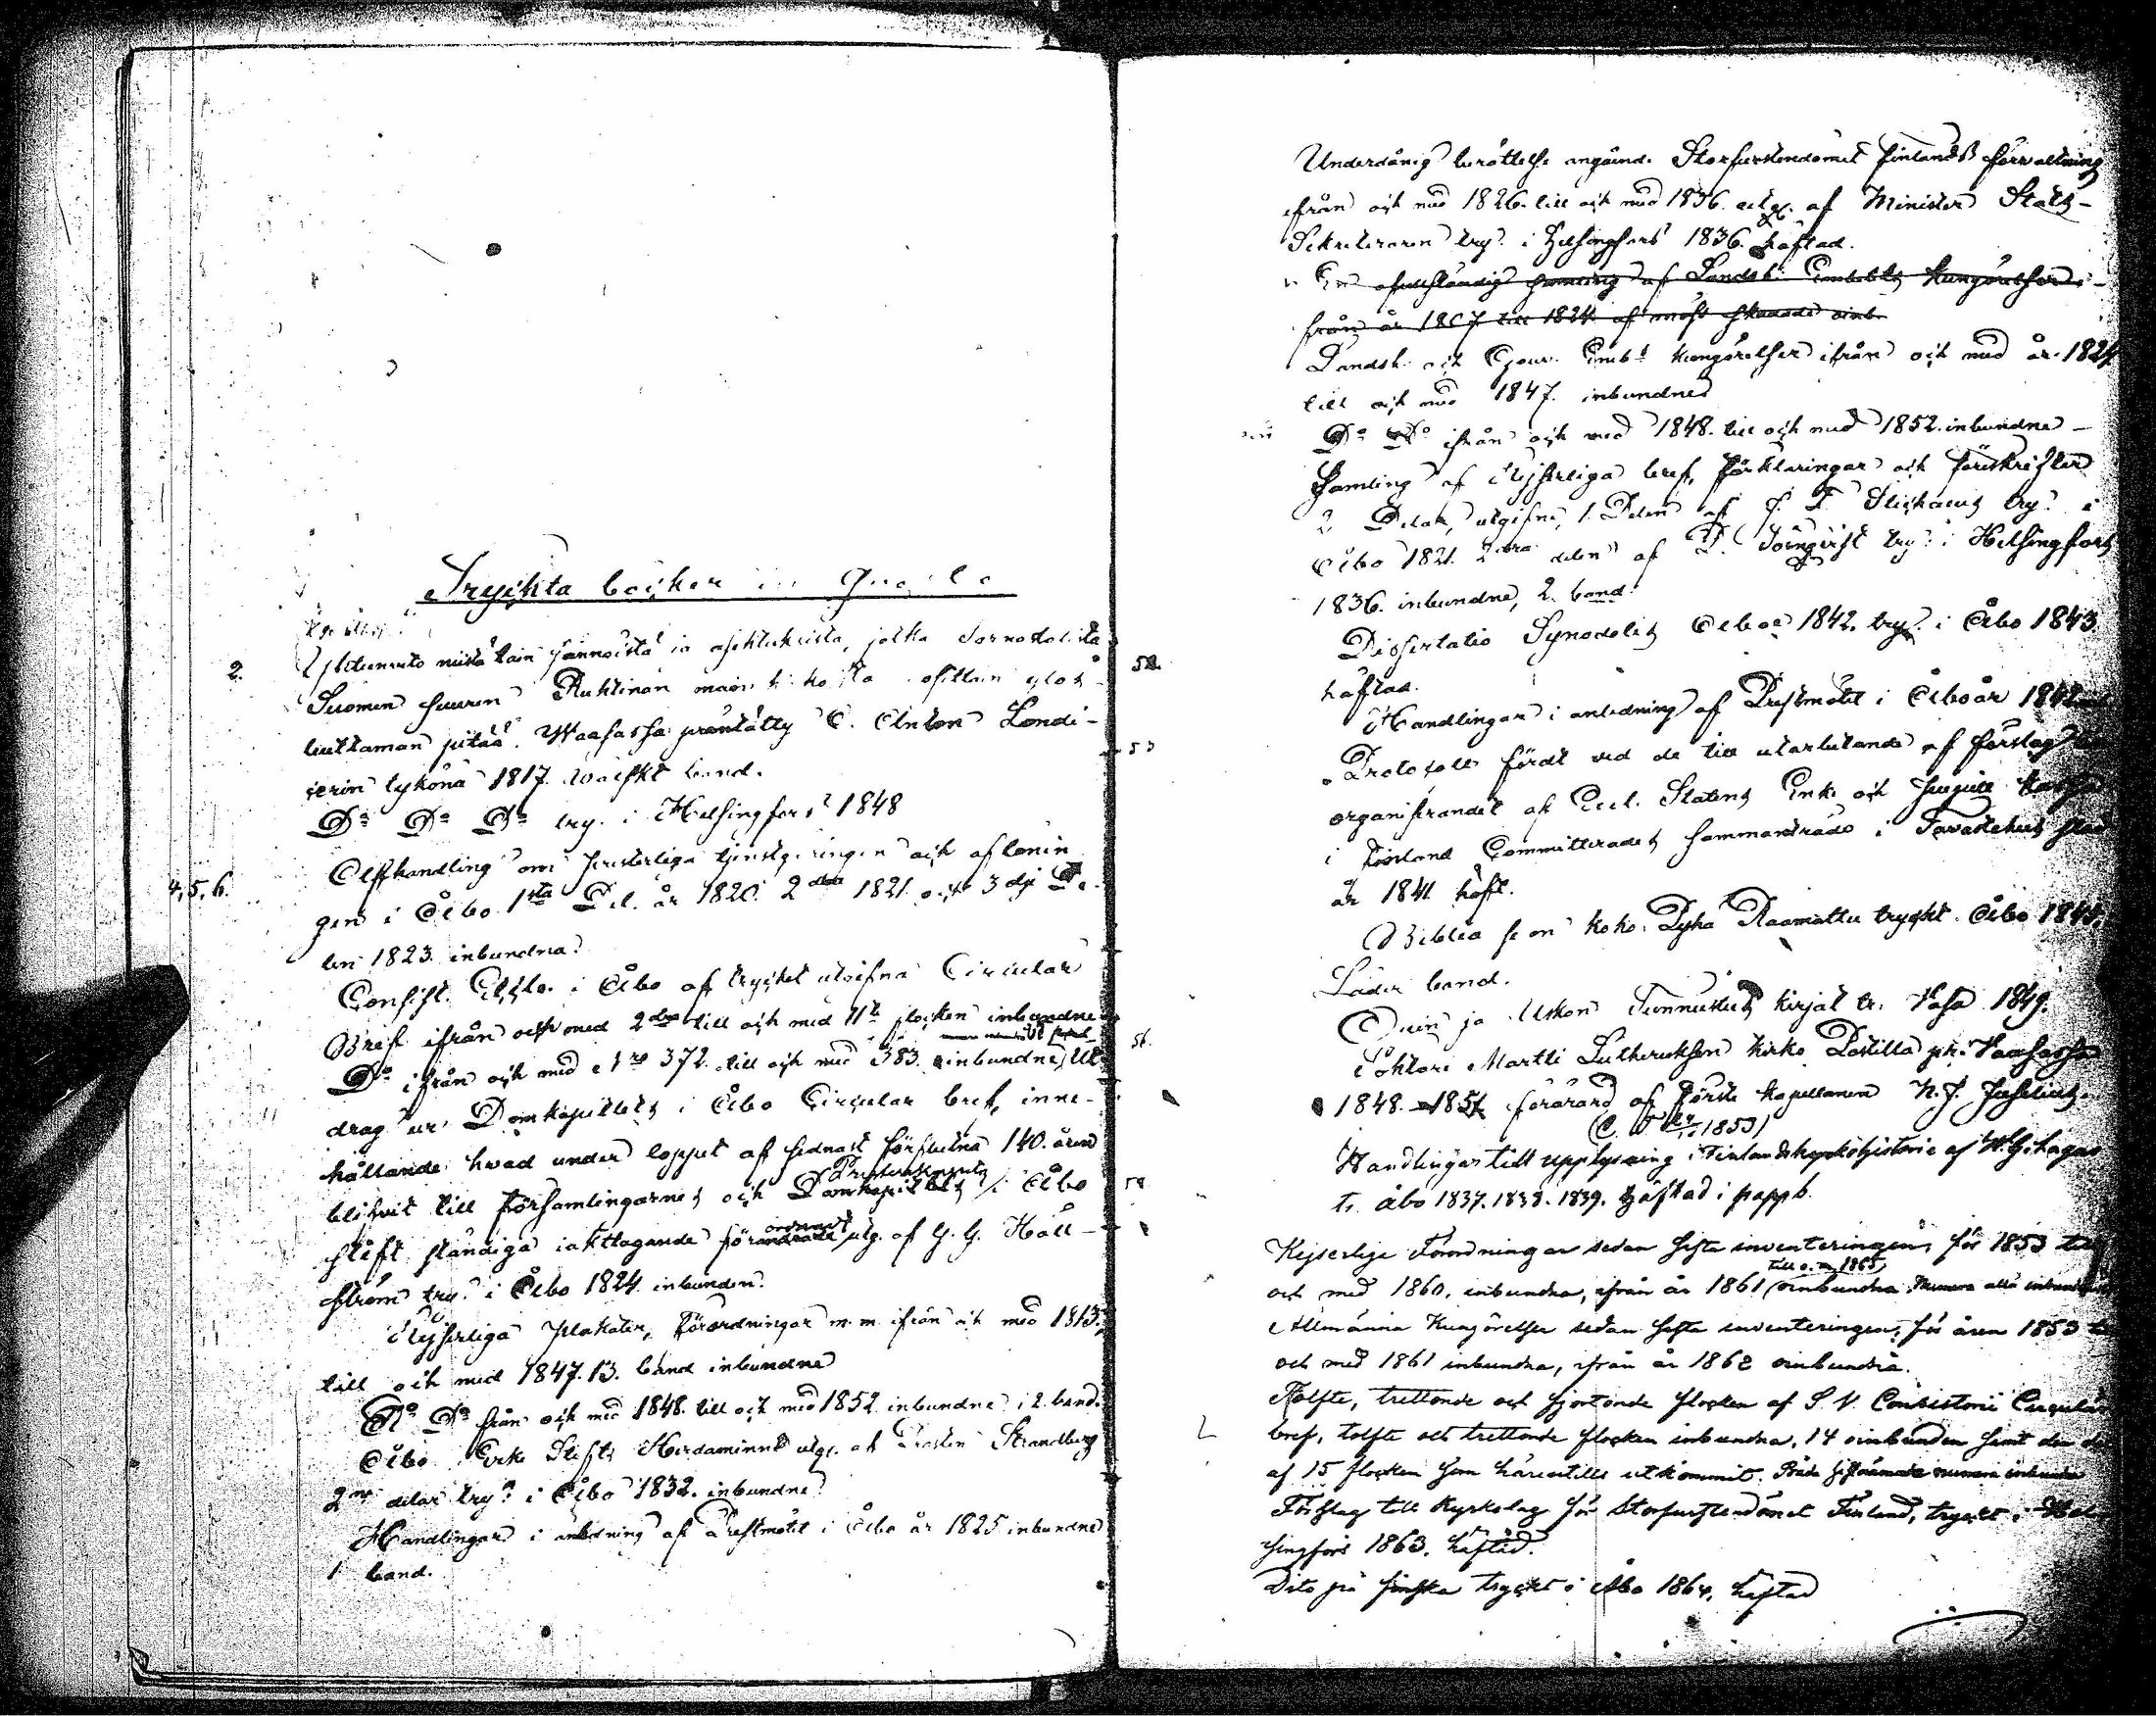 Tryckta böcker in Quarto
2. Ylösteencuto muistalain Sännoistä ia asetuksista, jotka Tornostolista
Suomen suuren Ruhtinan maan
luettaman pitää. Waasassa präntätty C. Anton Londi-
cerin tykönä 1817. Wälskt band.
Do Do Do try. i Helsingfors 1848
Afhandling om Presterliga tjenstgöringen och aflönin
4, 5, 6. gen i Åbo 1sta Del. år 1820. 2dra 1821. och 3dje De-
len 1823 inbundna.
Consist. Eccles. i Åbo af trycket utgifna Circulär
Bref ifrån och med 2dra till och med 11te flocken inbundne
Do ifrån och med No 372. till och med 383. inbundne, Ut-
drag ur Domkapitlets i Åbo Circulär bref, inne-
hållande hvad under loppet af sednast förflutna 140. åren
blifvit till Församlingarnes och Presterskapets i Åbo
stift ständiga iakttagande förordnadt utg. af G. G. Häll-
ström try. i Åbo 1824. inbunden.
Kejserliga Plakater, Förordningar m.m. ifrån åk med 1813.
till och med 1847. 13. band inbundne
Do Do från och med 1848. till och med 1852 inbundne i 2. band.
Åbo Erke Stifts Herdaminne utgr. af Prosten Strandberg
2ne delar try. i Åbo 1832. inbundne
Handlingar i anledning af Prestmötet i Åbo år 1825 inbundne
1 band.
Underdånig berättelse angående Storfurstendömet Finlands förvaltning
ifrån och med 1826. till och med 1836. utg. af Minister Stats-
Sekreteraren try. i Helsingfors 1836. häftad.
En ofullständig samling af Landsh. Embetets Kungörelser
från år 1807 till 1824
Landsh. och Gouv. Embts kungörelser ifrån och med år 1824
till och med 1847. inbundne
Do Do ifrån och med 1848. till och med 1852. inbundne -
Samling af Kejserliga bref, förklaringar och föreskrifter
2 Delar, utgifne, 1. Delen af try. i
Åbo 1821. 2dra delen af Törnqvist try. i Helsingfors
1836. inbundne, 2. band.
52. Dissertatio Synodalis Aboæ 1842. try. i Åbo 1843.
häftad.
Handlingar i anledning af Prestmötet i Åbo år 1842
53 Protocoll fördt vid de till utarbetande af förslag
organiserandet af Eccl. Statens Enke och Pupill kassa
i Finland Committerades sammanträde i Tavastehus stad
år 1841 häft.
Biblia se on koko Pyhä Raamattu tryckt Åbo 1845,
Läder band.
56. Ouin ja Uskon Tunnustus kirjat tr. Vasa 1849.
Tohtori Martti Lutheruksen Kirko Postilla pr. Vaasassa
1848. - 1851 förärad af Förste Kapellanen N. J. Juselius.
Handlingar till upplysning i Finlands kyrkohistorie af W. G. Lagus
tr. Åbo 1837. 1838. 1839. häftad i papp b.
Kejserlige Förordningar sedan sista inventeringen, för 1853 till
till o. m. 1865
och med 1860, inbundna, ifrån år 1861 oinbundna. Numera alla inbundna
Allmänna Kungörelser sedan sista inventeringen, för åren 1853
och med 1861 inbundna, ifrån år 1862 oinbundna.
Tolfte, trettonde och fjortonde flocken af S. V. Consistorii Circulär
bref, tolfte och trettonde flocken inbundna, 14 oinbunden samt den del
af 15 flocken som härintills utkommit. Båda sistnämnda numera inbundna
Förslag till Kyrkolag för Storfurstendömet Finland, tryckt i Hel-
singfors 1863. häftad.
Dito på finska tryckt i Åbo 1864. häftad